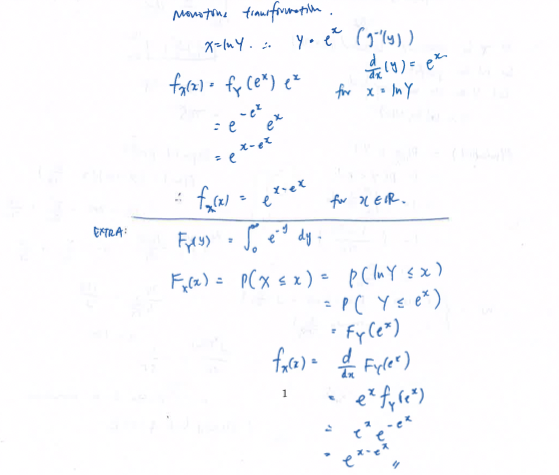 Monotone transformation.
x = ln Y ∴ Y = e^x (g^{-1}(y))
d/dx (y) = e^x
f_X(x) = f_Y(e^x) e^x for x = ln Y
= e^{-e^x} e^x
= e^{x-e^x}
∴ f_X(x) = e^{x-e^x} for x ∈ ℝ.
EXTRA: F_Y(y) = ∫_0^∞ e^{-y} dy.
F_X(x) = P(X ≤ x) = P(ln Y ≤ x)
= P( Y ≤ e^x)
= F_Y(e^x)
f_X(x) = d/dx F_Y(e^x)
1
= e^x f_Y(e^x)
= e^x e^{-e^x}
= e^{x-e^x} //